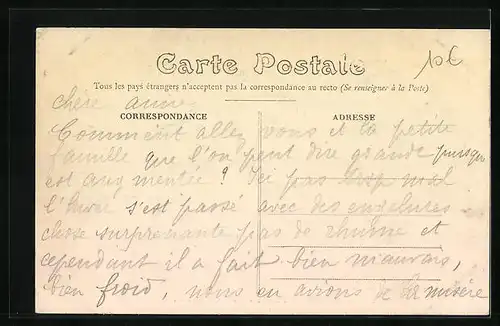 Carte Postale
Tous les pays étrangers n'acceptent pas la correspondance au recto (Se renseigner à la Poste)
chère
CORRESPONDANCE ADRESSE
Comment allez vous et la petite
famille que l'on peut dire grande puisque
est augmentée ? Ici pas trop mal
l'hiver s'est passé avec des engelures
chose surprenante pas de rhume et
cependant il a fait bien mauvais,
bien froid, nous en avions de la misère